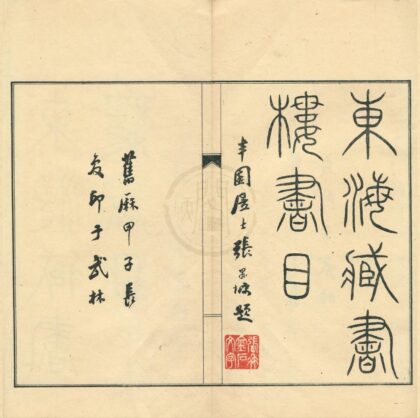 東海藏書
樓書目
半園居士張題
舊厤甲子長
夏印于武林